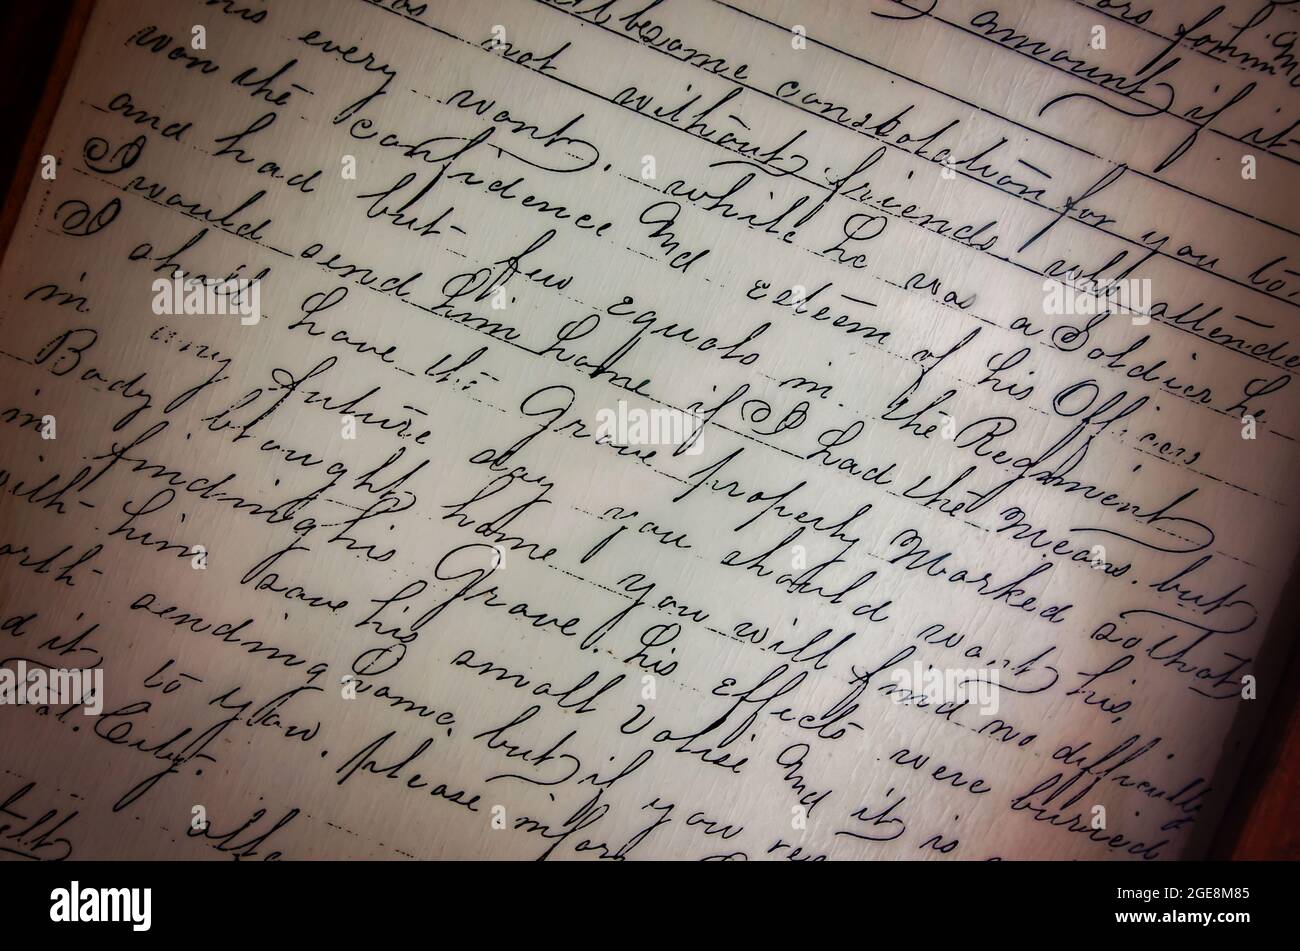 amount if it
become constolation for you to
was not without friends who attende
his every want. while he was a Soldier he
won the confidence and esteem of his Officers
and had but few equals in the Regment
I would send him home if I had the Means. but
I shall have the Grave properly Marked so that
in any future day you should want his,
Body brought home you will find no difficulty
in finding his Grave. his Effects were buried
with him save his small Valise and it is
orth sending home, but if you re
d it to you. please infor
tal. City.
alamy
Image ID: 2GE8M85
www.alamy.com